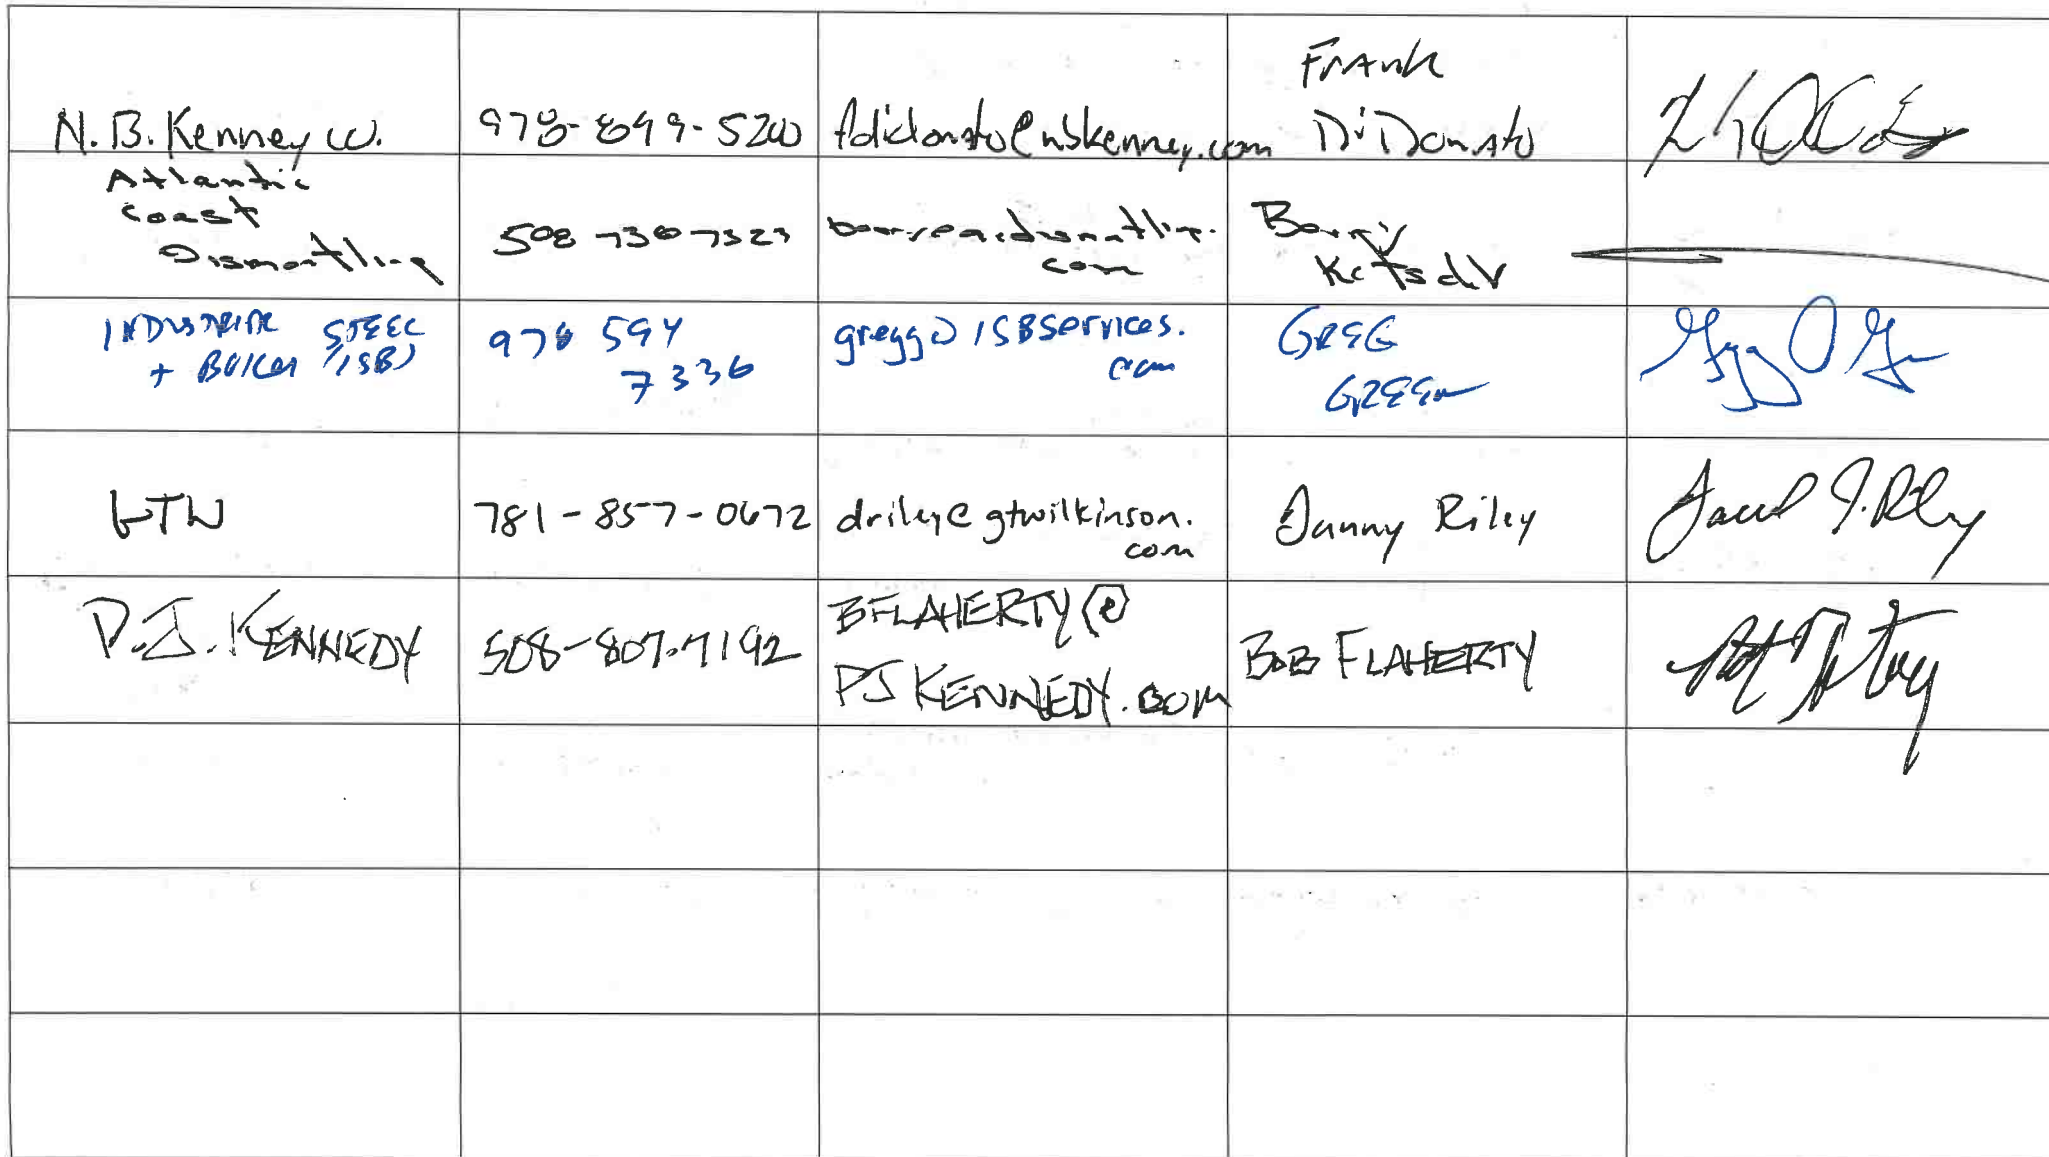 N.B. Kenney Co.
978-849-5200
fdidonato@nbkenney.com
Frank
DiDonato
Atlantic
Coast
Dismantling
508
com
Barry
INDUSTRIAL STEEL
+ BOILER (ISB)
978 594
7336
gregg@ISBServices.
com
GREG
GREEN
GTW
781-857-0672
driley@gtwilkinson.
com
Danny Riley
P.J. KENNEDY
508-807-7192
BFLAHERTY@
PJKENNEDY.COM
BOB FLAHERTY